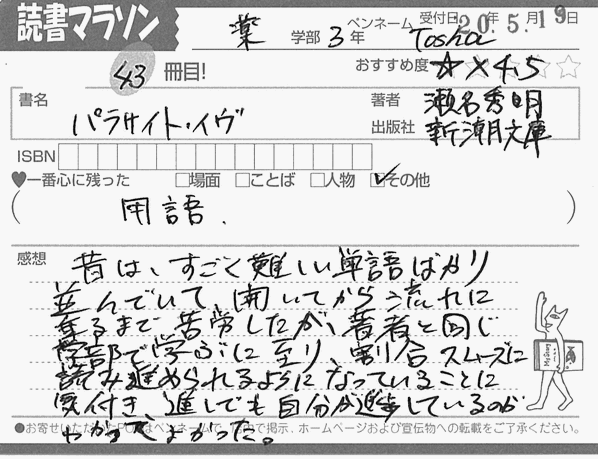 読書マラソン
薬 学部 3 年
ペンネーム Tosha
受付日 '20年 5.月 19日
43 冊目!
おすすめ度 ☆×4.5
書名 パラサイト・イヴ
著者 瀬名秀明
出版社 新潮文庫
ISBN
♥一番心に残った □場面 □ことば □人物 ☑その他
( 用語. )
感想
昔は、すごく難しい単語ばかり
並んでいて、開いてから流れに
乗るまで苦労したが、著者と同じ
学部で学ぶに至り、割合スムーズに
読み進められるようになっていることに
気付き、 でも自分が進歩しているのが
よかった。
●お寄せいただいたPOPはペンネームで、店内で掲示、ホームページおよび宣伝物への転載をご了承ください。